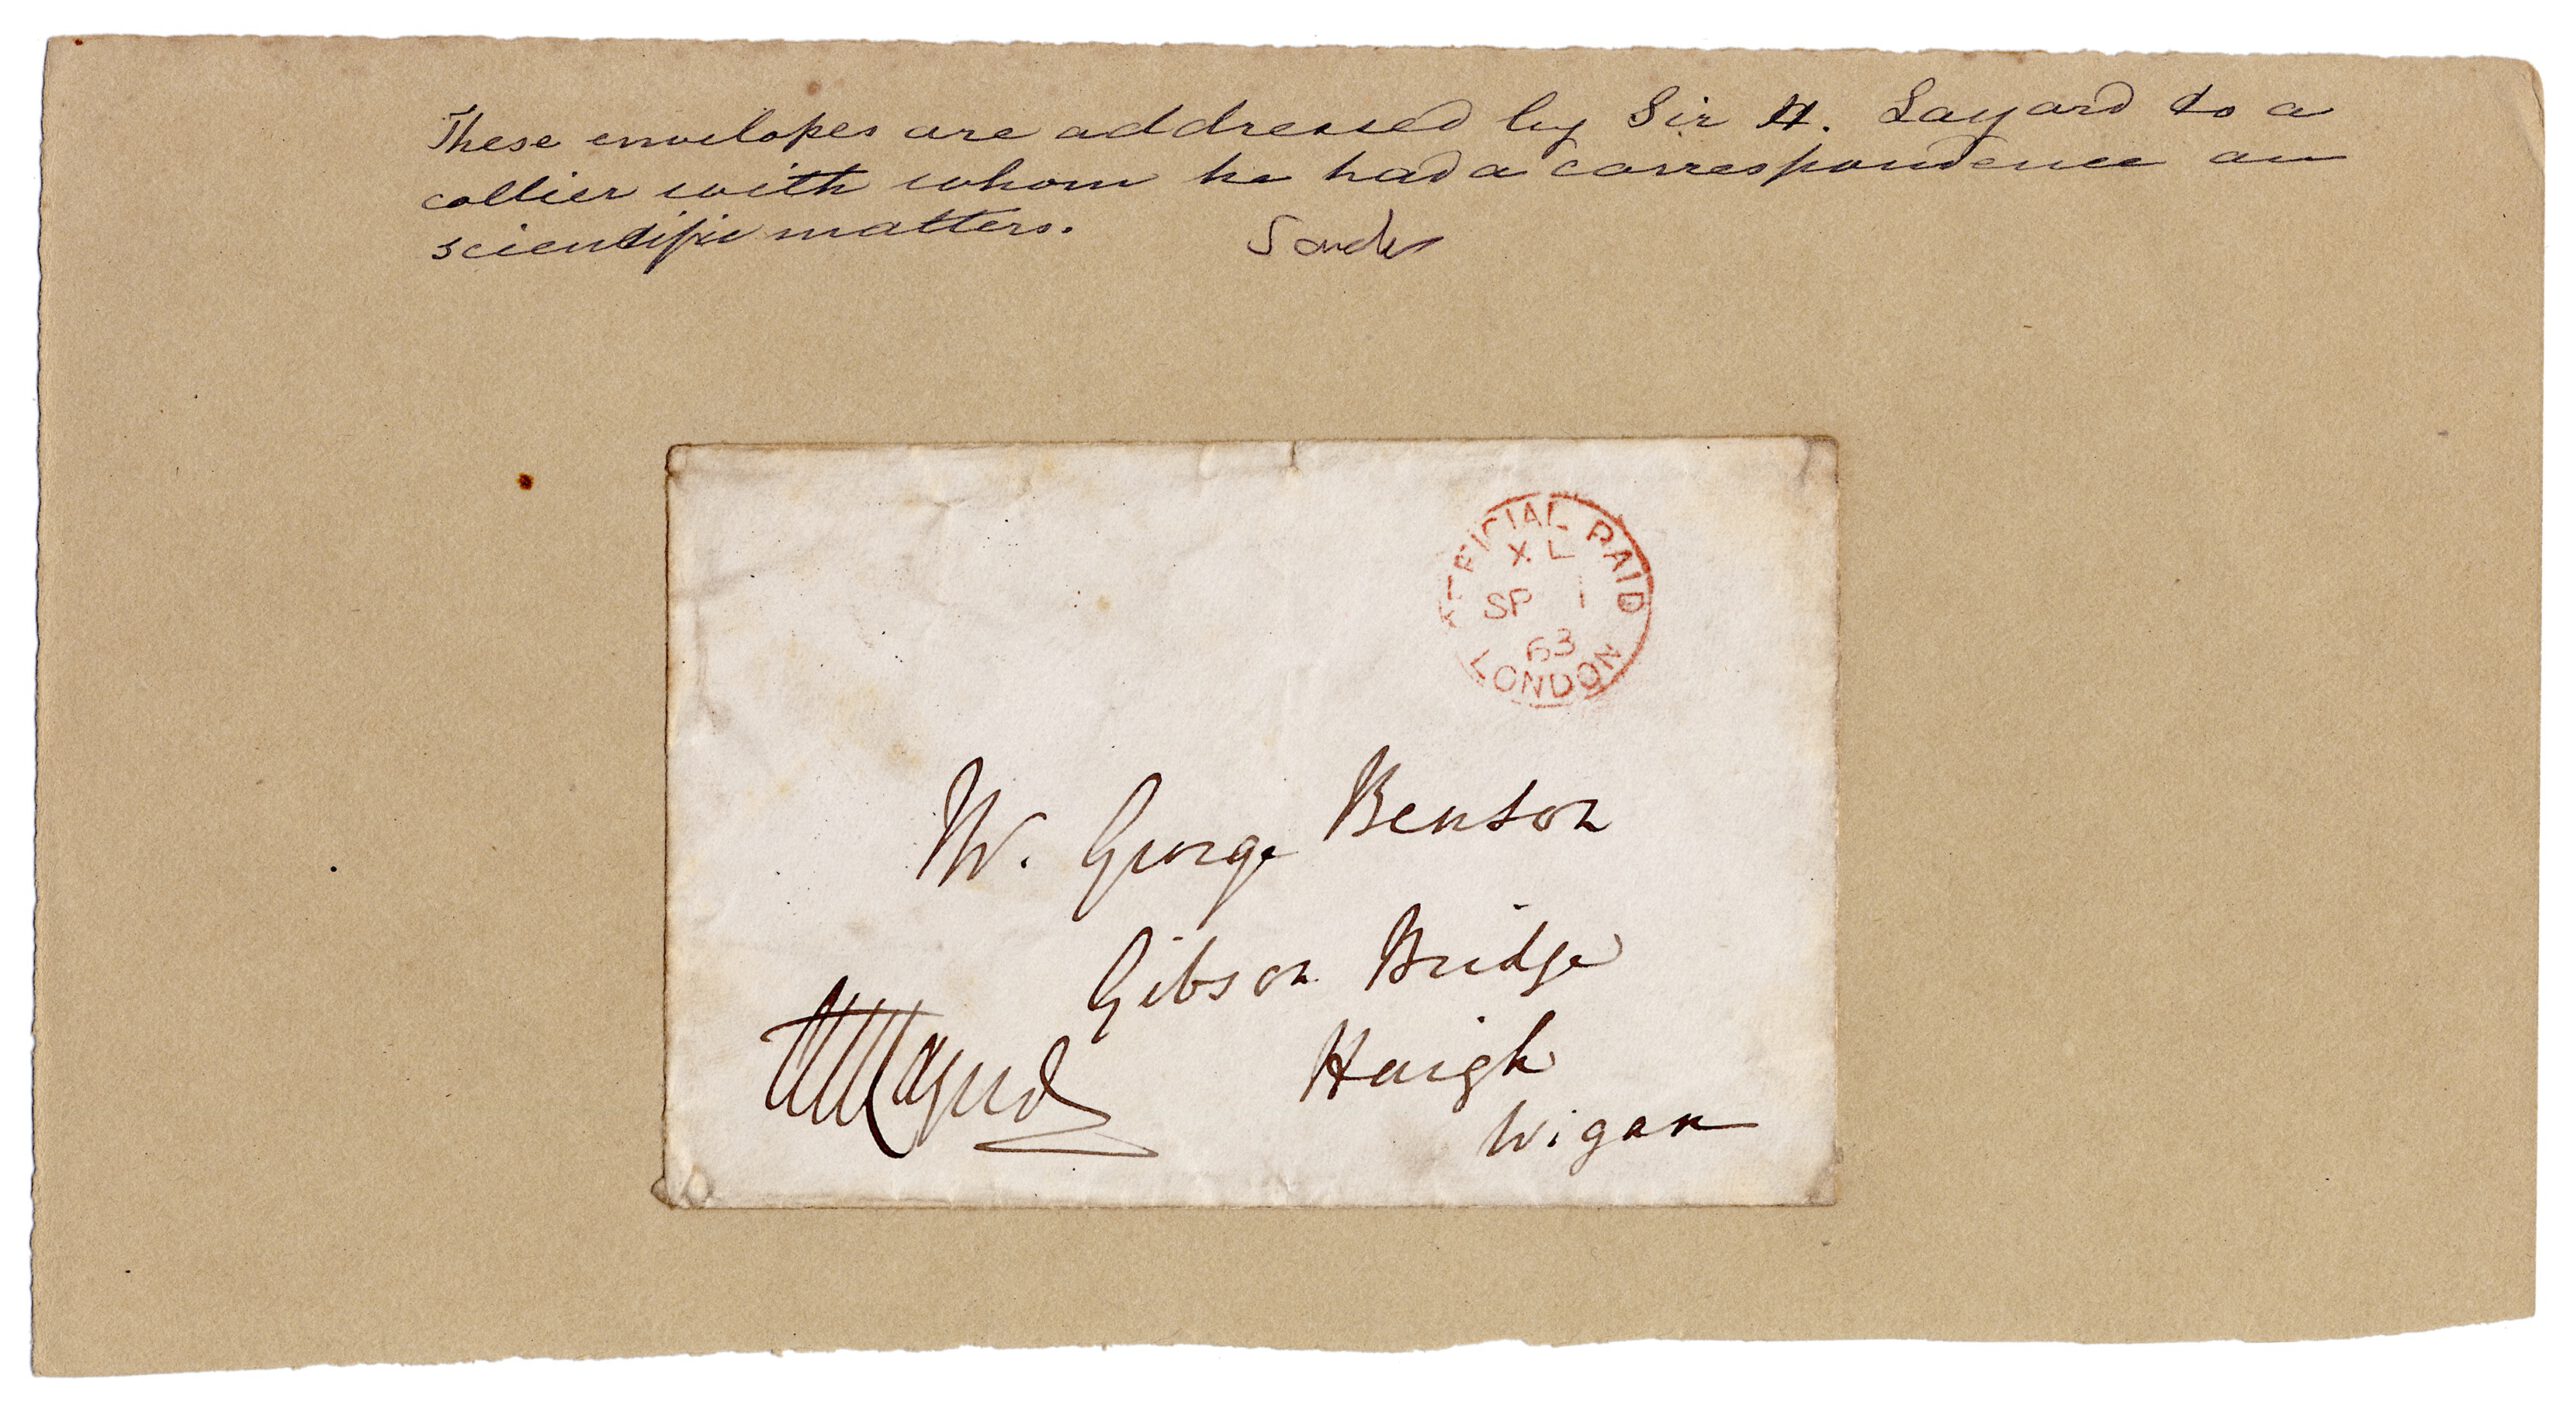 These envelopes are addressed by Sir H. Layard to a
collier with whom he had a correspondence on
scientific matters.
OFFICIAL PAID
XL
SP 1
63
LONDON
Mr. George Benson
Gibson Bridge
Haigh
Wigan
AHLayard